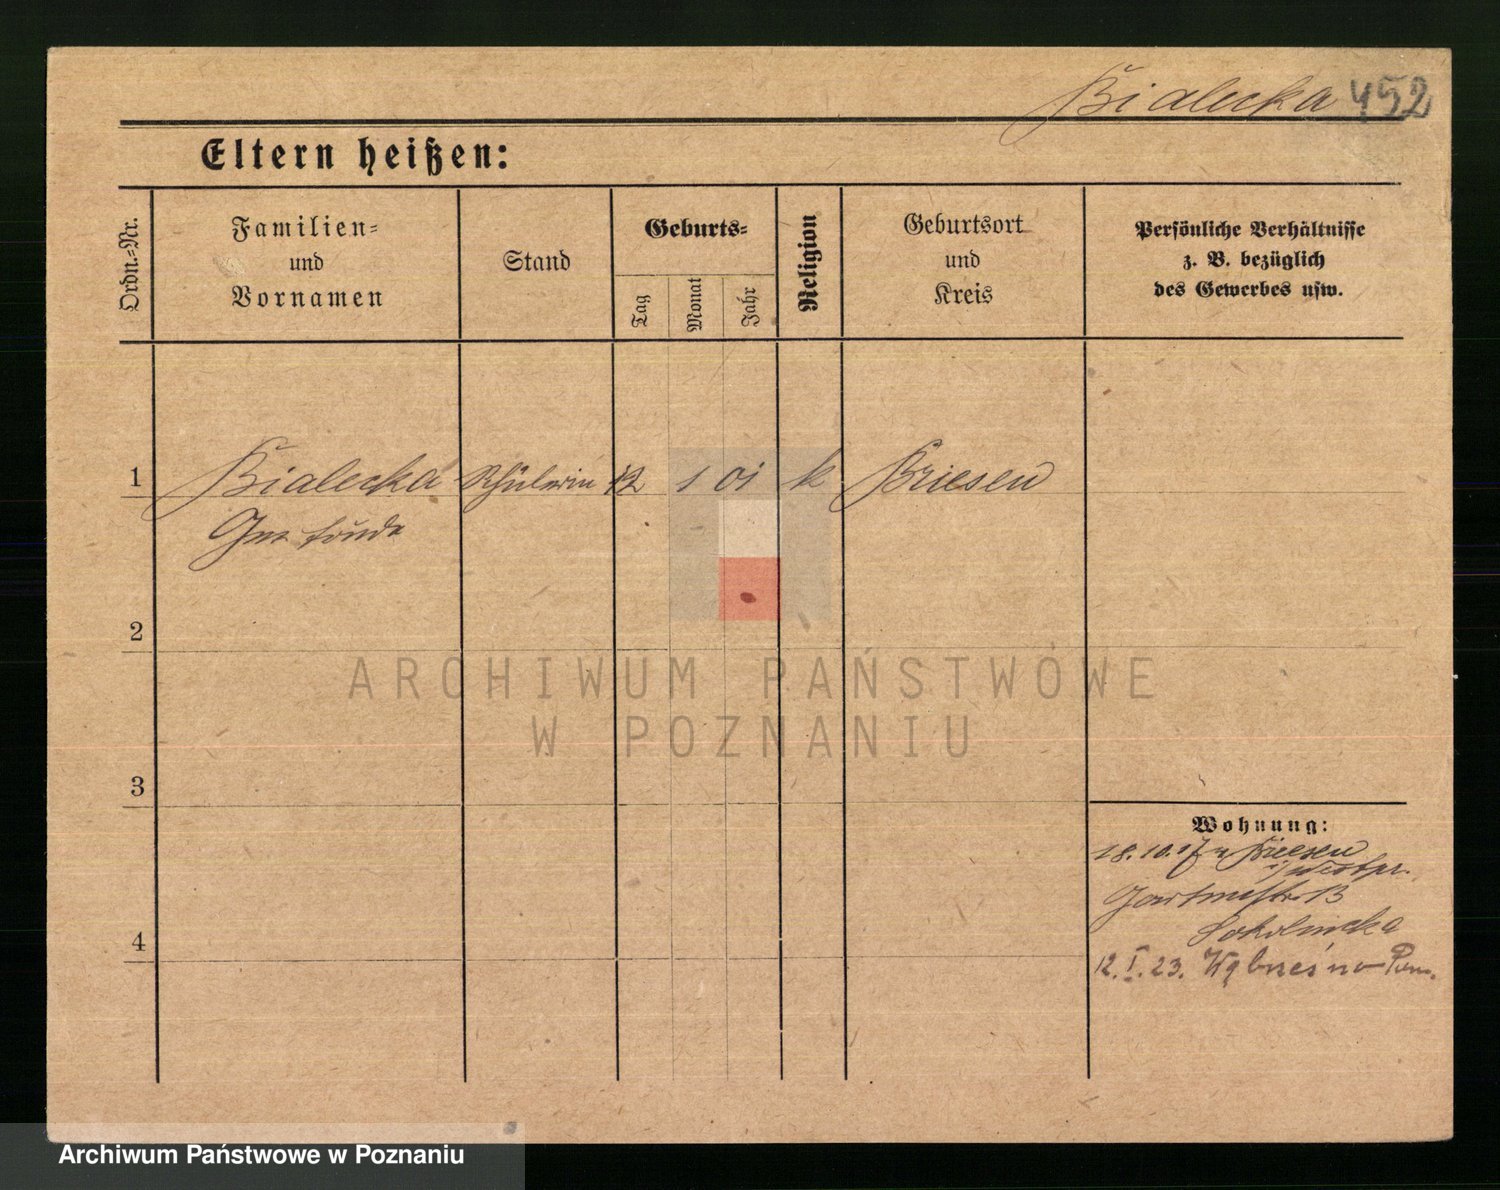 Bialecka 452
Eltern heißen:
Ordn.-Nr.
Familien-
und
Vornamen
Stand
Geburts-
Tag
Monat
Jahr
Religion
Geburtsort
und
Kreis
Persönliche Verhältnisse
z. B. bezüglich
des Gewerbes usw.
1 Bialecka Schülerin 12 1 01 k Briesen
2
3
4
Wohnung:
18.10.17 n Briesen
i/Westpr.
Gartenstr. 13
12. I. 23. Wąbrzeźno Pom.
ARCHIWUM PAŃSTWOWE
W POZNANIU
Archiwum Państwowe w Poznaniu